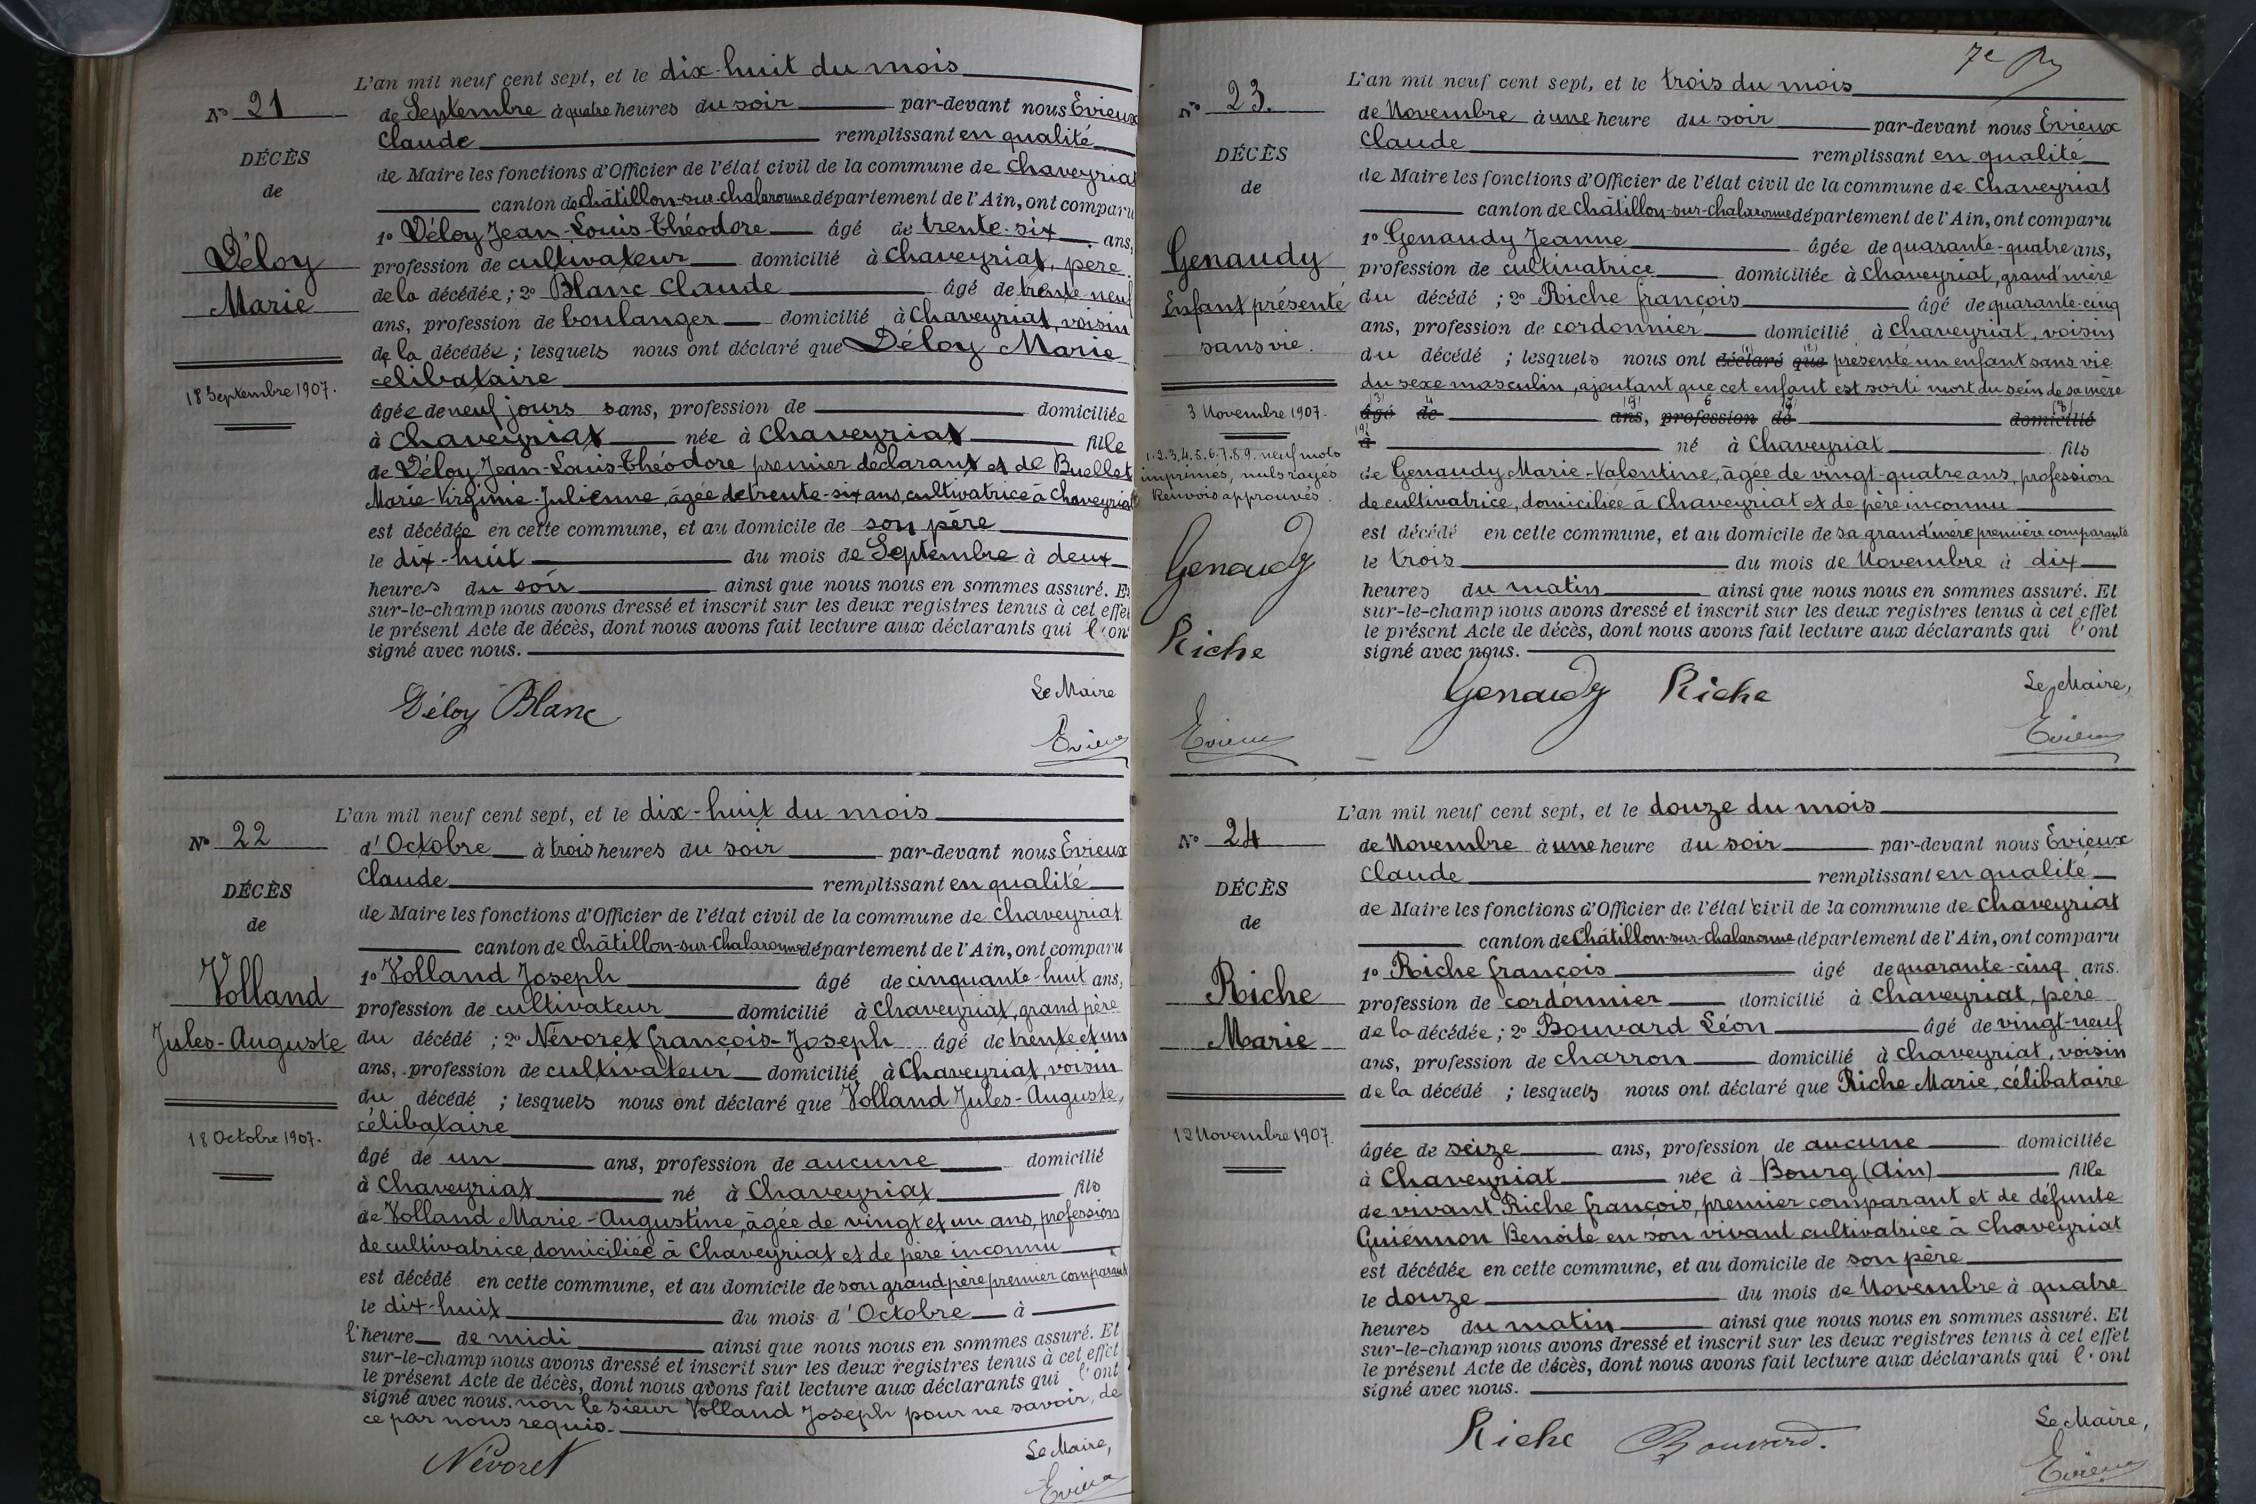 L'an mil neuf cent sept, et le dix-huit du mois
N° 21
de Septembre à quatre heures du soir par-devant nous Evieux
Claude remplissant en qualité
DÉCÈS
de Maire les fonctions d'Officier de l'état civil de la commune de Chaveyriat
de
canton de Châtillon-sur-Chalaronne département de l'Ain, ont comparu
1° Déloy Jean-Louis-Théodore âgé de trente-six ans,
Déloy
profession de cultivateur domicilié à Chaveyriat, père
Marie
de la décédée ; 2° Blanc Claude âgé de trente-neuf
ans, profession de boulanger domicilié à Chaveyriat, voisin
de la décédée ; lesquels nous ont déclaré que Déloy Marie
célibataire
18 Septembre 1907.
âgée de neuf jours sans, profession de domiciliée
à Chaveyriat née à Chaveyriat fille
de Déloy Jean-Louis-Théodore premier déclarant et de Buellet
Marie-Virginie-Julienne, âgée de trente-six ans, cultivatrice à Chaveyriat
est décédée en cette commune, et au domicile de son père
le dix-huit du mois de Septembre à deux
heures du soir ainsi que nous nous en sommes assuré. Et
sur-le-champ nous avons dressé et inscrit sur les deux registres tenus à cet effet
le présent Acte de décès, dont nous avons fait lecture aux déclarants qui l'ont
signé avec nous.
Déloy Blanc
Le Maire
Evieux
L'an mil neuf cent sept, et le dix-huit du mois
N° 22
d'Octobre à trois heures du soir par-devant nous Evieux
Claude remplissant en qualité
DÉCÈS
de Maire les fonctions d'Officier de l'état civil de la commune de Chaveyriat
de
canton de Châtillon-sur-Chalaronne département de l'Ain, ont comparu
1° Volland Joseph âgé de cinquante-huit ans,
Volland
profession de cultivateur domicilié à Chaveyriat, grand père
Jules-Auguste
du décédé ; 2° Névoret François-Joseph âgé de trente et un
ans, profession de cultivateur domicilié à Chaveyriat, voisin
du décédé ; lesquels nous ont déclaré que Volland Jules-Auguste,
célibataire
18 Octobre 1907.
âgé de un ans, profession de aucune domicilié
à Chaveyriat né à Chaveyriat fils
de Volland Marie-Augustine, âgée de vingt et un ans, profession
de cultivatrice, domiciliée à Chaveyriat et de père inconnu
est décédé en cette commune, et au domicile de son grand père premier comparant
le dix-huit du mois d'Octobre à
l'heure de midi ainsi que nous nous en sommes assuré. Et
sur-le-champ nous avons dressé et inscrit sur les deux registres tenus à cet effet
le présent Acte de décès, dont nous avons fait lecture aux déclarants qui l'ont
signé avec nous. non le sieur Volland Joseph pour ne savoir, de
ce par nous requis.
Névoret
Le Maire,
Evieux
7e
L'an mil neuf cent sept, et le trois du mois
N° 23.
de Novembre à une heure du soir par-devant nous Evieux
Claude remplissant en qualité
DÉCÈS
de Maire les fonctions d'Officier de l'état civil de la commune de Chaveyriat
de
canton de Châtillon-sur-Chalaronne département de l'Ain, ont comparu
1° Genaudy Jeanne âgée de quarante-quatre ans,
Genaudy
profession de cultivatrice domiciliée à Chaveyriat, grand'mère
Enfant présenté
du décédé ; 2° Riche François âgé de quarante-cinq
ans, profession de cordonnier domicilié à Chaveyriat, voisin
sans vie.
du décédé ; lesquels nous ont déclaré que présenté un enfant sans vie
du sexe masculin, ajoutant que cet enfant est sorti mort du sein de sa mère
3 Novembre 1907.
âgé de ans, profession de domicilié
à né à Chaveyriat fils
1.2.3.4.5.6.7.8.9. neuf mots
imprimés, nuls rayés
Renvois approuvés.
de Genaudy Marie-Valentine, âgée de vingt-quatre ans, profession
de cultivatrice, domiciliée à Chaveyriat et de père inconnu
est décédé en cette commune, et au domicile de sa grand'mère première comparante
le trois du mois de Novembre à dix
heures du matin ainsi que nous nous en sommes assuré. Et
sur-le-champ nous avons dressé et inscrit sur les deux registres tenus à cet effet
le présent Acte de décès, dont nous avons fait lecture aux déclarants qui l'ont
signé avec nous.
Genaudy
Riche
Evieux
Genaudy Riche
Le Maire,
Evieux
L'an mil neuf cent sept, et le douze du mois
N° 24
de Novembre à une heure du soir par-devant nous Evieux
Claude remplissant en qualité
DÉCÈS
de Maire les fonctions d'Officier de l'état civil de la commune de Chaveyriat
de
canton de Châtillon-sur-Chalaronne département de l'Ain, ont comparu
1° Riche François âgé de quarante-cinq ans.
Riche
profession de cordonnier domicilié à Chaveyriat, père
Marie
de la décédée ; 2° Bouvard Léon âgé de vingt-neuf
ans, profession de charron domicilié à Chaveyriat, voisin
de la décédé ; lesquels nous ont déclaré que Riche Marie, célibataire
12 Novembre 1907.
âgée de seize ans, profession de aucune domiciliée
à Chaveyriat née à Bourg (Ain) fille
de vivant Riche François, premier comparant et de défunte
Guiénnon Benoite en son vivant cultivatrice à Chaveyriat
est décédée en cette commune, et au domicile de son père
le douze du mois de Novembre à quatre
heures du matin ainsi que nous nous en sommes assuré. Et
sur-le-champ nous avons dressé et inscrit sur les deux registres tenus à cet effet
le présent Acte de décès, dont nous avons fait lecture aux déclarants qui l'ont
signé avec nous.
Riche Bouvard.
Le Maire,
Evieux